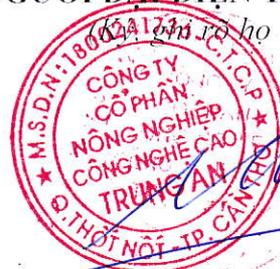 (Ký, ghi rõ họ
M.S.D.N: C.T.C.P
CÔNG TY
CỔ PHẦN
NÔNG NGHIỆP
CÔNG NGHỆ CAO
TRUNG AN
Q.THỐT NỐT - TP. CẦN THƠ